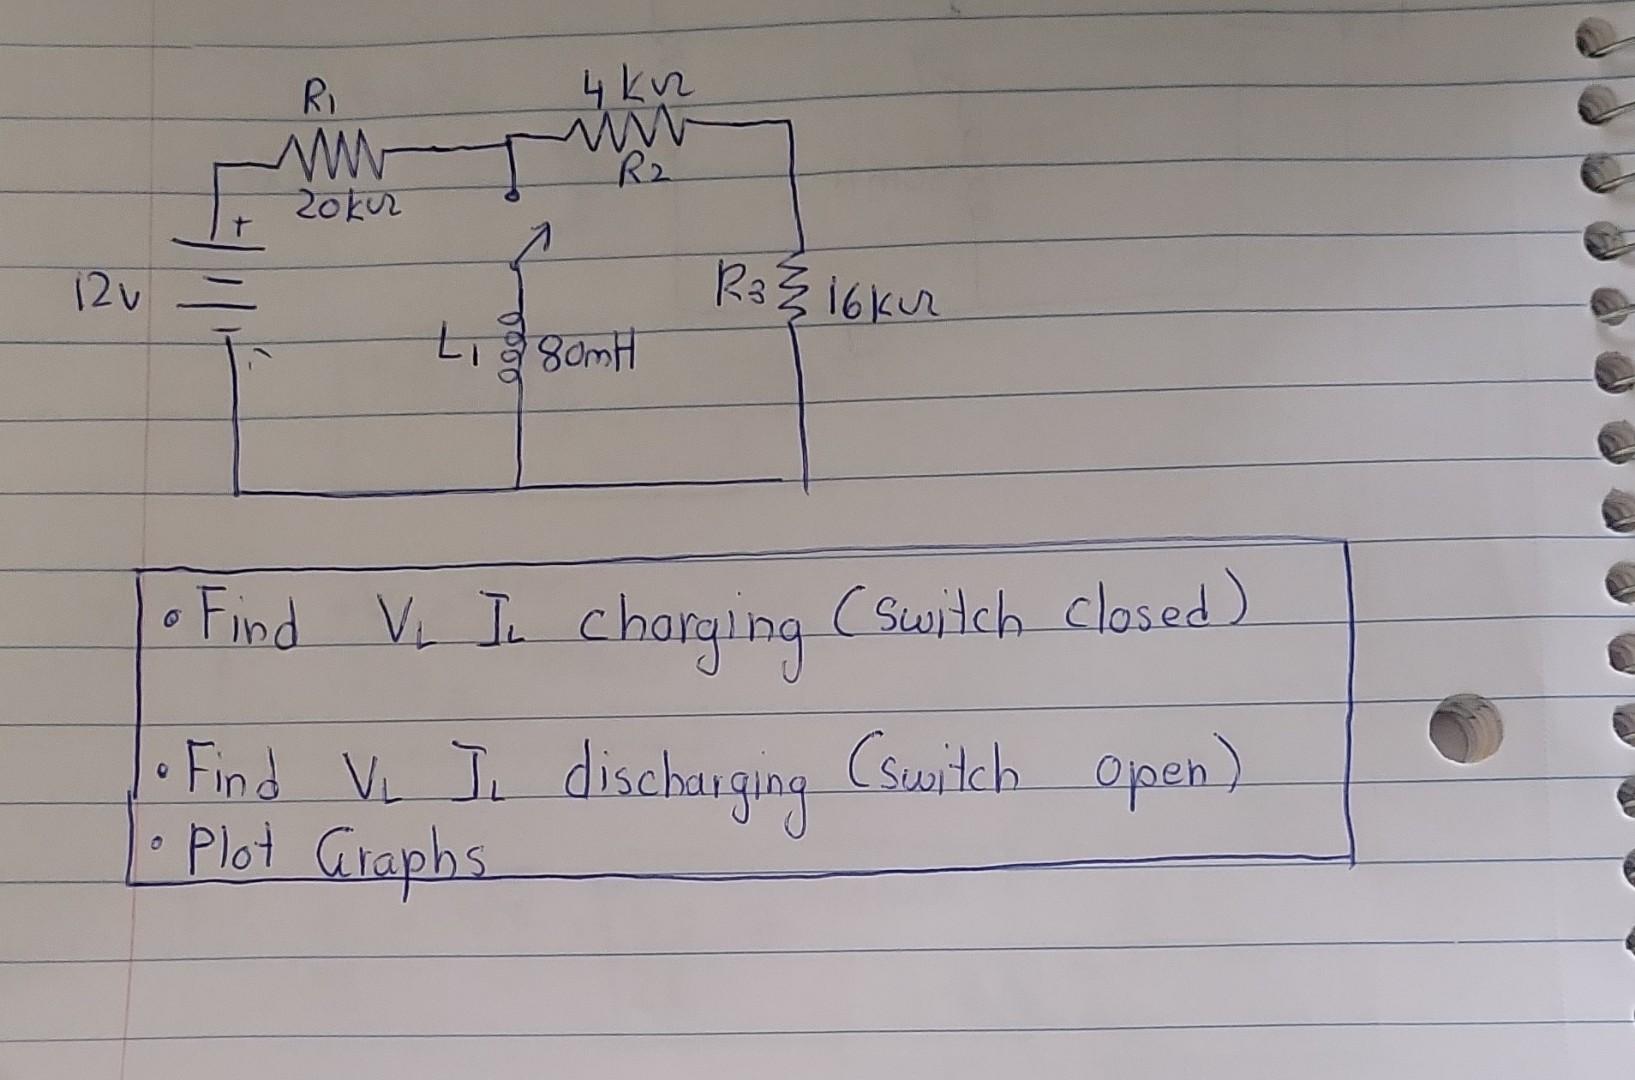 R1
4 kΩ
R2
20kΩ
+
12v
-
L1
80mH
R3
16kΩ
• Find VL IL charging (switch closed)
• Find VL IL discharging (switch open)
• Plot Graphs